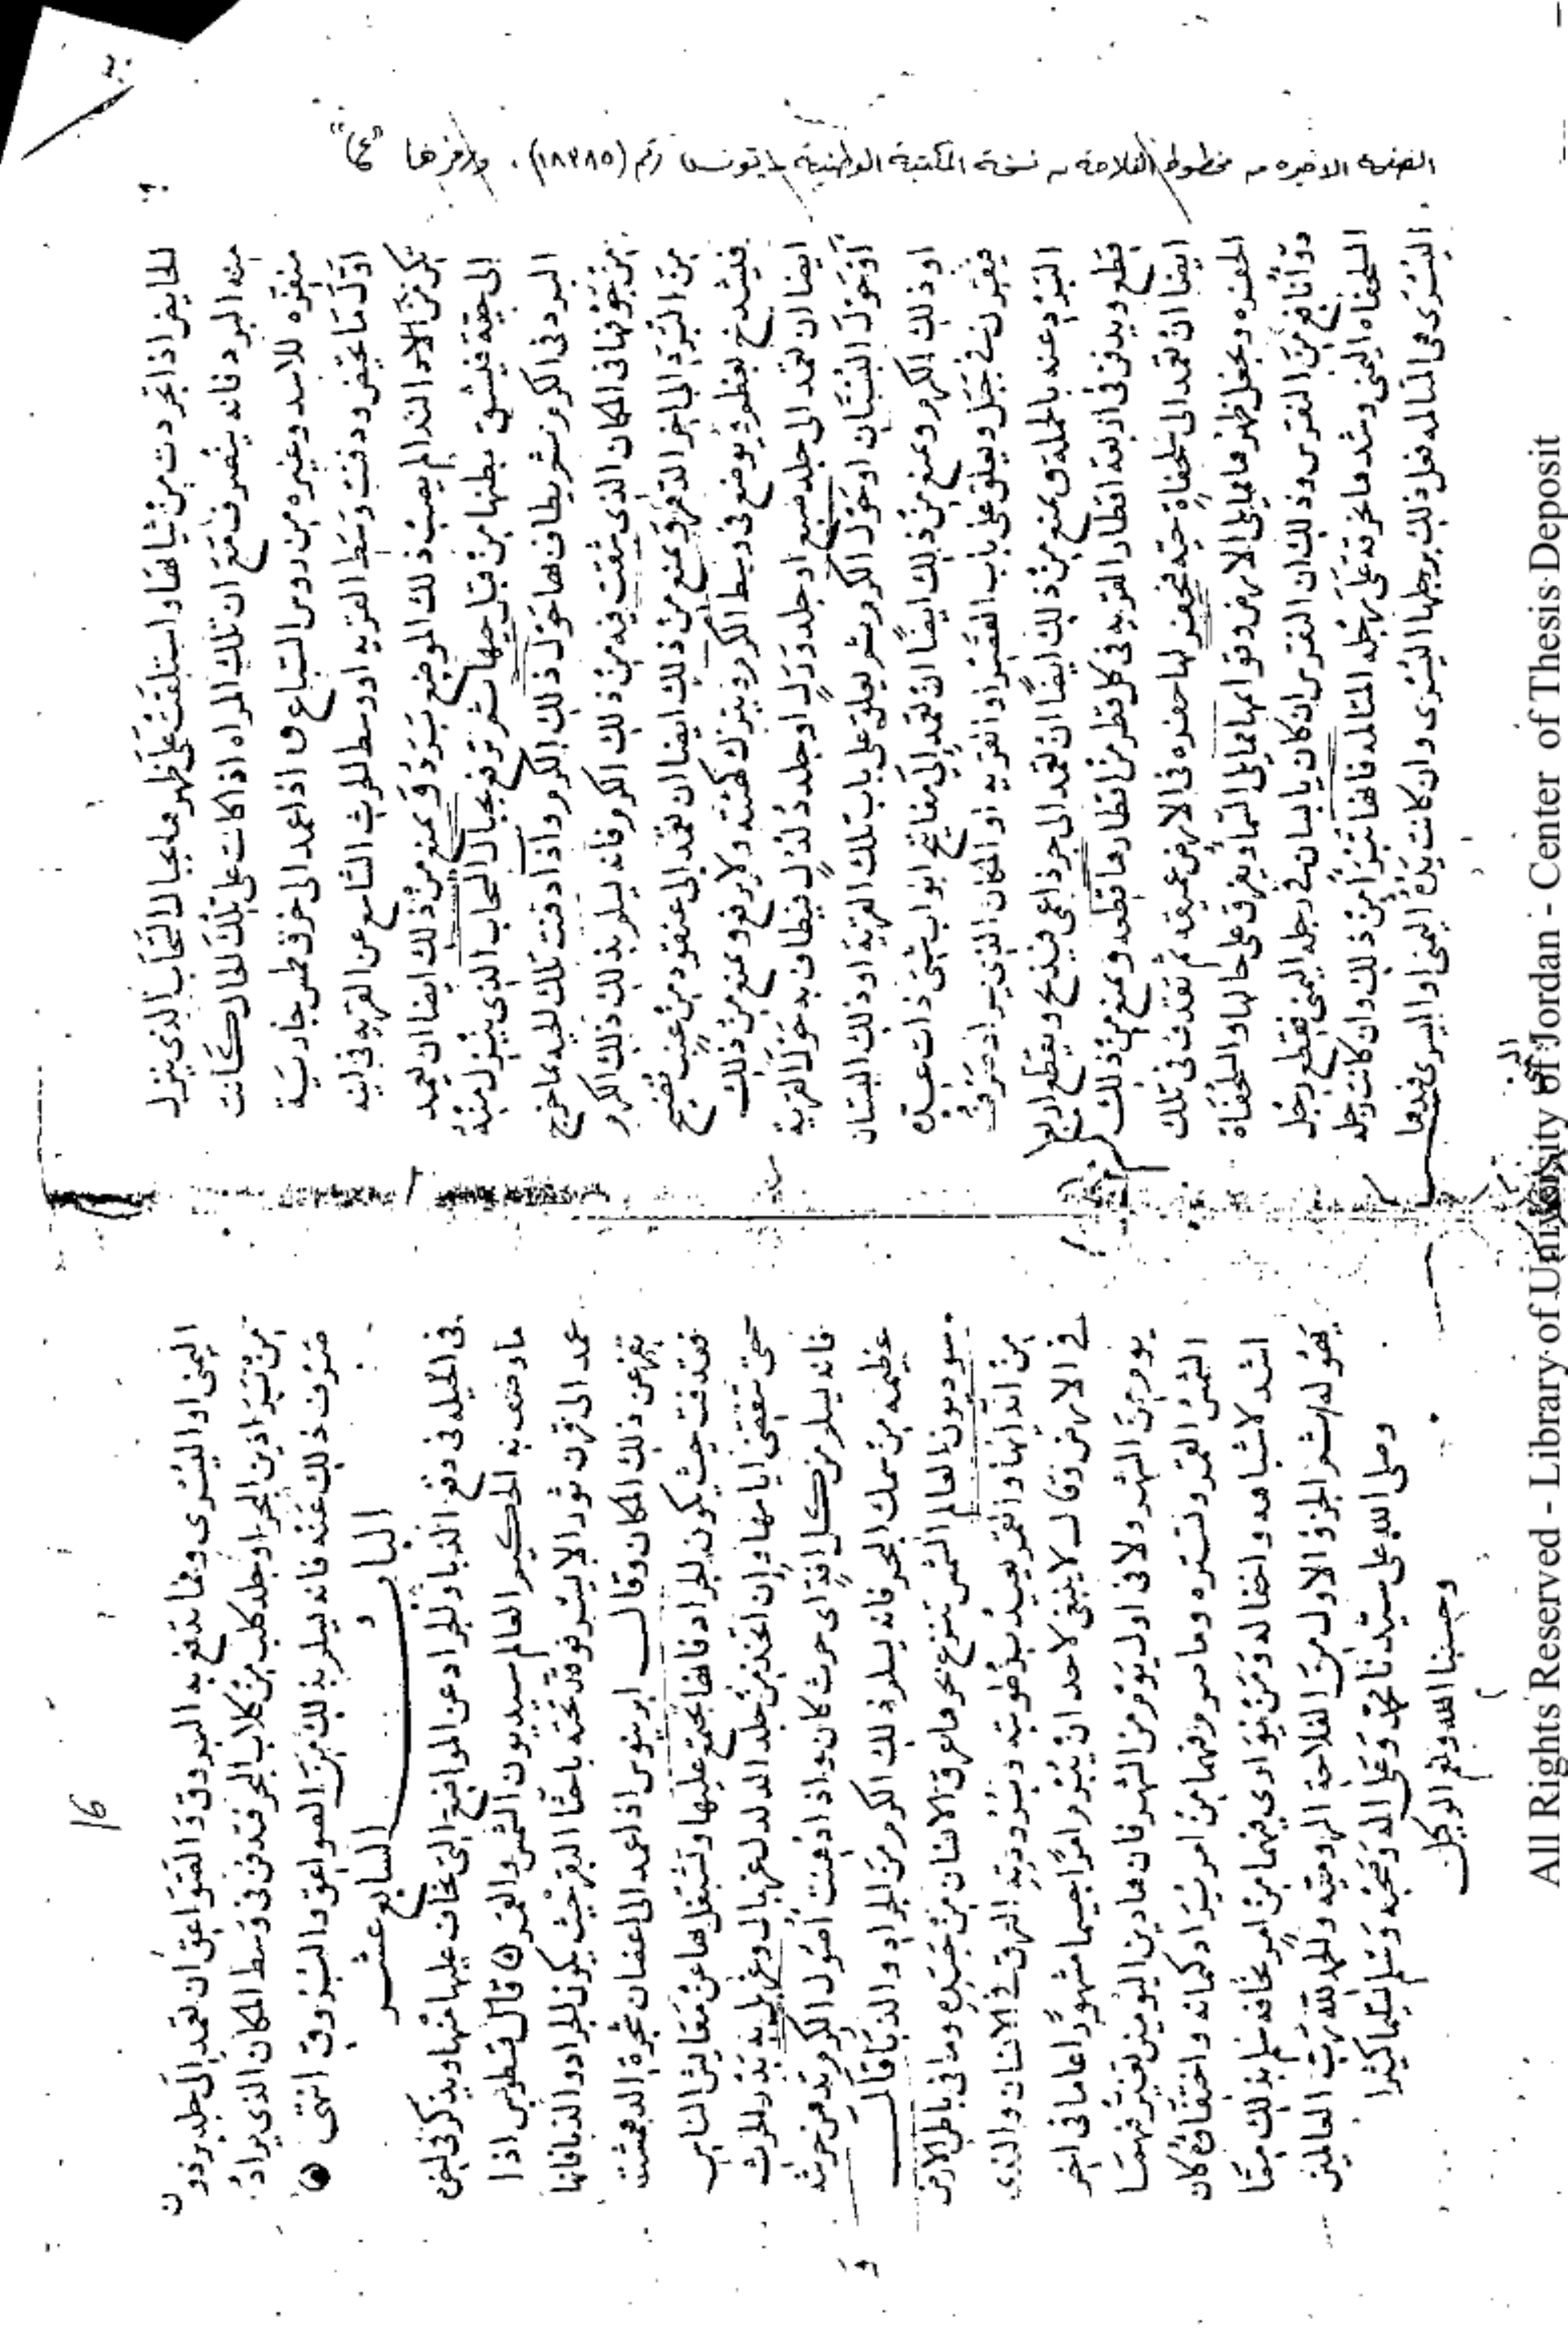 الصفحة الاخيرة من مخطوط الفلاحة من نسخة المكتبة الوطنية بتونس رقم (١٨٣٨٥). ورمزها
للحايض اذا تجردت من ثيابها واستلقت على ظهرها بحيال السحاب الذى ينزل
منه البرد فانه ينصرف مع ان تلك المراه اذا كانت على تلك الحال كانت
منفره للاسد وغيره من روس السباع واذا عمد الى خرقة جارية
اول ما تحيض ودفنت وسط القريه او وسط الحرث الشاسع عن القريه فى
لم يصب ذلك الموضع برد ويمنع من ذلك ايضا ان يعمد
الى حية فيشق بطنها من قبل ثم توقع بحيال السحاب الذى ينزل منه
البرد فى الكرم ثم يطاف بها حول ذلك الكرم واذا دفنت تلك الحيه بما خرج
من جوفها فى المكان الذى شقت فيه من ذلك الكرم فانه يسلم بذلك ذلك الكرم
من البرد الى اخر الدهر ويمنع من ذلك ايضا ان تعمد الى عنقود من عنب نضيج
فيشدخ بعظم ويوضع فى وسط الكرم ويترك كهيئته ولا يرفع ويمنع من ذلك
ايضا ان تعمد الى جلد ضبع او جلد ورل او جلد دلدل فيطاف به حول القرية
او حول البستان او حول الكرم ثم يعلق على باب تلك القرية او ذلك البستان
او ذلك الكرم ويمنع من ذلك ايضا ان تعمد الى مفاتيح ابواب شتى ذات عده
فيقرن فى حبل ويعلق على باب القصر او القريه او المكان الذى يراد صرف
البرد عنه بالحلق ويمنع من ذلك ايضا ان تعمد الى جرذ اعمى فيذبح ويقطع اربع
قطع ويدفن فى اربعة اقطار القريه فى كل قطر من اقطارها قطعه ويمنع من ذلك
ايضا ان تعمد الى سلحفاة حية فتحفر لها حفره فى الارض عميقه ثم تقذف فى تلك
الحفره ويجعل ظهرها مما يلى الارض وقوائمها مما يلى السما ويفرق على حالها والسلحفاة
دوا نافع من النقرس وذلك ان النقرس ان كان بانسان فى رجله اليمنى فقطع رجل
السلحفاه اليمنى وشدها بخرقة على رجله المتالمه فانها تبرا من ذلك وان كانت رجله
اليسرى هى المتالمه فعل ذلك برجلها اليسرى وان كانت يده اليمنى او اليسرى فيدها
اليمنى او اليسرى ومما تدفع به البروق والصواعق ان تعمد الى جلد برذون
من براذين البحر او جلد كلب من كلاب البحر فتدفن فى وسط المكان الذى يراد
صرف ذلك عنه فانه يسلم بذلك من الصواعق والبروق انتهى
الباب السابع عشر
فى الحيله فى دفع الدبا والجراد عن المواضع التى تخاف عليها منها ويذكر فى اخره
ما وصف به الحكيم العالم سيديون الشمس والقمر قال قسطوس اذا
عمد الى قرن ثور الايسر فوقد تحته باختا البقر حيث يكون الجراد والدبا فانها
تفر عن ذلك المكان وقال ابرينوس اذا عمد الى اغصان شجرة الدهمشت
فقذفت حيث يكون الجراد فانها تجتمع عليها وتشتغل بها عن معايش الناس
حتى تنقضى ايامها وان اتخذ من جلد الدلدل غربال وغربل به بذر الحرث
فانه يسلم من كل افة اى حرث كان واذا دهنت اصول الكرم بدهن حرشه
عظيمه من سمك البحر فانه يسلم ذلك الكرم من الجراد والدبا قال
سوديون العالم الشمس تنزع نحوها عرق الانسان من جسده وما فى باطن الارض
من اندائها والقمر يعيد برطوبته وبرودته العرق فى الانسان والندى
فى الارض وقال لا ينبغى لاحد ان يبرم امرا جسيما مشهورا عاما فى اخر
يوم من الشهر ولا فى اول يوم من الشهر فان هاذين اليومين تغير فيهما
الشمس القمر وتستره وما سوم فيهما من امر يراد كتمانه واختفاؤه كان
اشد لاشباهه واخفا له ومن توارى فيهما من امر يخافه سلم بذلك مما
يهوله ثم الجزو الاول من الفلاحة الروميه والحمد لله رب العالمين
وصلى الله على سيدنا محمد وعلى اله وصحبه وسلم تسليما كثيرا
وحسبنا الله ونعم الوكيل
16
All Rights Reserved - Library of University of Jordan - Center of Thesis Deposit